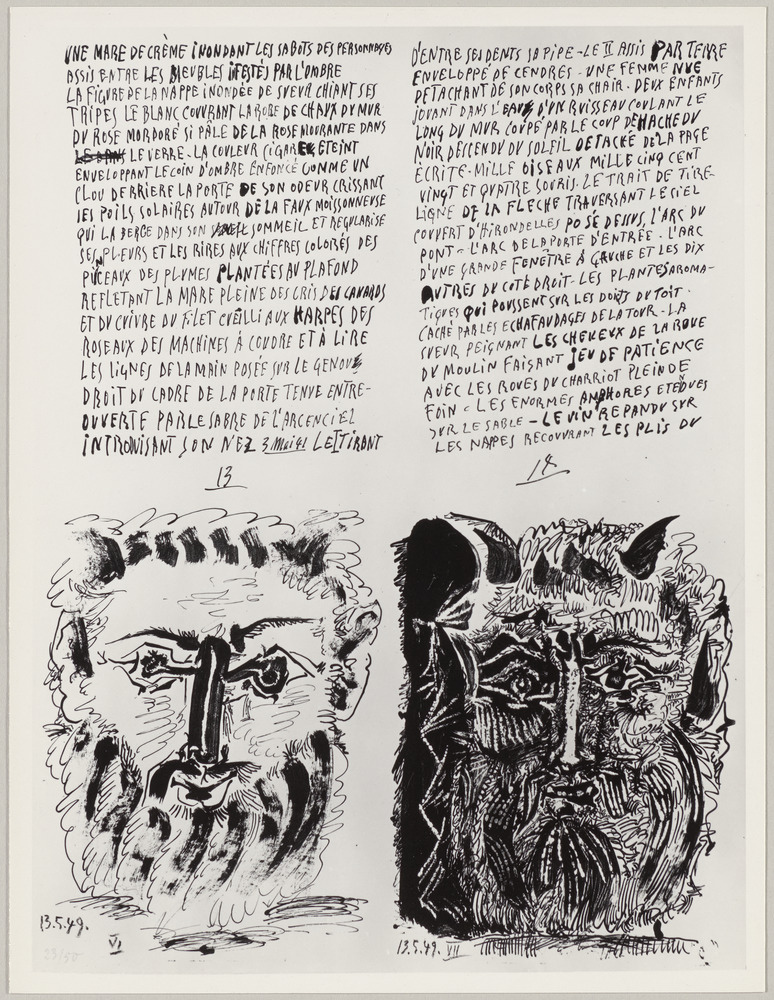 UNE MARE DE CRÈME INONDANT LES SABOTS DES PERSONNAGES
ASSIS ENTRE LES MEUBLES IFESTÉS PAR L'OMBRE
LA FIGURE DE LA NAPPE INONDÉE DE SUEUR CHIANT SES
TRIPES LE BLANC COUVRANT LA ROBE DE CHAUX DU MUR
DU ROSE MORDORÉ SI PÂLE DE LA ROSE MOURANTE DANS
LE VERRE - LA COULEUR CIGARE ETEINT
ENVELOPPANT LE COIN D'OMBRE ENFONCÉ COMME UN
CLOU DERRIERE LA PORTE DE SON ODEUR CRISSANT
SES POILS SOLAIRES AUTOUR DE LA FAUX MOISSONNEUSE
QUI LA BERCE DANS SON SOMMEIL ET REGULARISE
SES PLEURS ET LES RIRES AUX CHIFFRES COLORÉS DES
PUCEAUX DES PLUMES PLANTÉES AU PLAFOND
REFLETANT LA MARE PLEINE DES CRIS DES CANARDS
ET DU CUIVRE DU FILET CUEILLI AUX HARPES DES
ROSEAUX DES MACHINES À COUDRE ET À LIRE
LES LIGNES DE LA MAIN POSÉE SUR LE GENOUX
DROIT DU CADRE DE LA PORTE TENUE ENTRE-
OUVERTE PAR LE SABRE DE L'ARC EN CIEL
INTRONISANT SON NEZ 3 MAI 41 LE I TIRANT
13
D'ENTRE SES DENTS SA PIPE - LE II ASSIS PAR TERRE
ENVELOPPÉ DE CENDRES - UNE FEMME NUE
DETACHANT DE SON CORPS SA CHAIR - DEUX ENFANTS
JOUANT DANS L'EAU D'UN RUISSEAU COULANT LE
LONG DU MUR COUPÉ PAR LE COUP DE HACHE DU
NOIR DESCENDU DU SOLEIL DETACHÉ DE LA PAGE
ÉCRITE - MILLE OISEAUX MILLE CINQ CENT
VINGT ET QUATRE SOURIS - LE TRAIT DE TIRE-
LIGNE DE LA FLECHE TRAVERSANT LE CIEL
COUVERT D'HIRONDELLES POSÉ DESSUS, L'ARC DU
PONT - L'ARC DE LA PORTE D'ENTRÉE - L'ARC
D'UNE GRANDE FENETRE À GAUCHE ET LES DIX
AUTRES DU COTÉ DROIT - LES PLANTES AROMA-
TIQUES QUI POUSSENT SUR LES DOIGTS DU TOIT -
CACHÉ PAR LES ECHAFAUDAGES DE LA TOUR - LA
SUEUR PEIGNANT LES CHEVEUX DE LA ROUE
DU MOULIN FAISANT JEU DE PATIENCE
AVEC LES ROUES DU CHARRIOT PLEIN DE
FOIN - LES ENORMES AMPHORES ETENDUES
SUR LE SABLE - LE VIN REPANDU SUR
LES NAPPES RECOUVRANT LES PLIS DU
14
13.5.49.
VI
23/50
13.5.49. VII